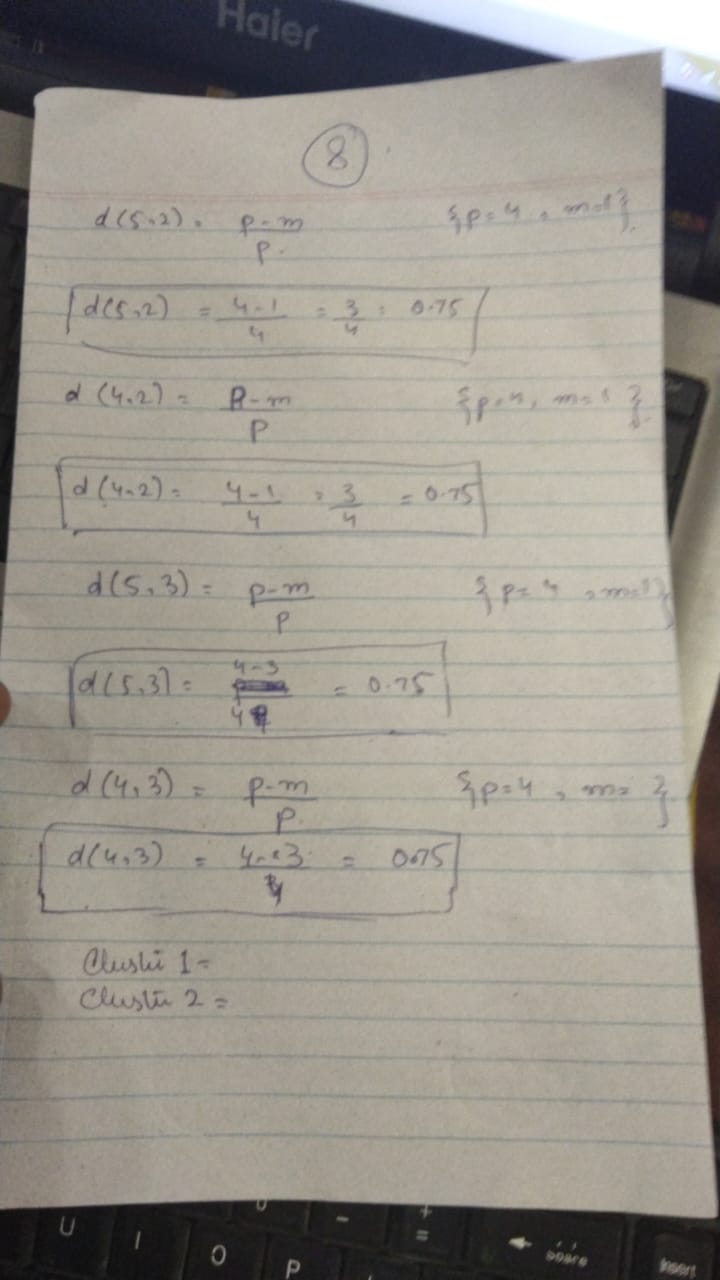 Haier
8
d(5,2) = p-m / p. {p=4, m=1}.
d(5,2) = 4-1 / 4 = 3/4 = 0.75
d(4,2) = P-m / P {p=4, m=1}.
d(4,2) = 4-1 / 4 = 3/4 = 0.75
d(5,3) = p-m / p {p=4, m=1}
d(5,3) = 4-3 / 4 = 0.75
d(4,3) = p-m / p. {p=4, m= }
d(4,3) = 4-3 / 4 = 0.75
Cluster 1 =
Cluster 2 =
U I O P - + = Insert